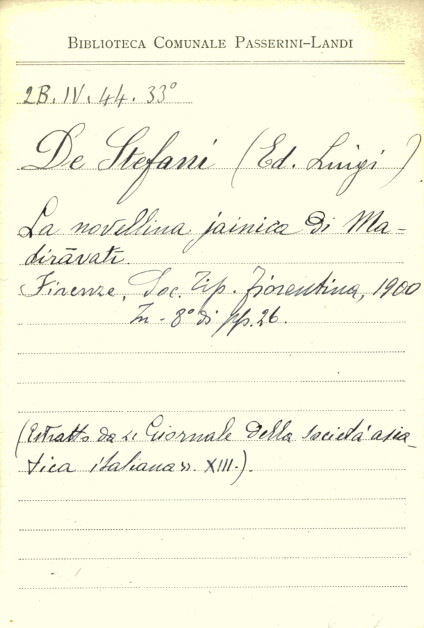 BIBLIOTECA COMUNALE PASSERINI-LANDI
2B. IV. 44. 33°
De Stefani (Ed. Luigi)
La novellina jainica di Ma-
dirāvatī.
Firenze, Soc. Tip. Fiorentina, 1900
In-8° di pp. 26.
(Estratto da « Giornale della società asia-
tica italiana ». XIII.).